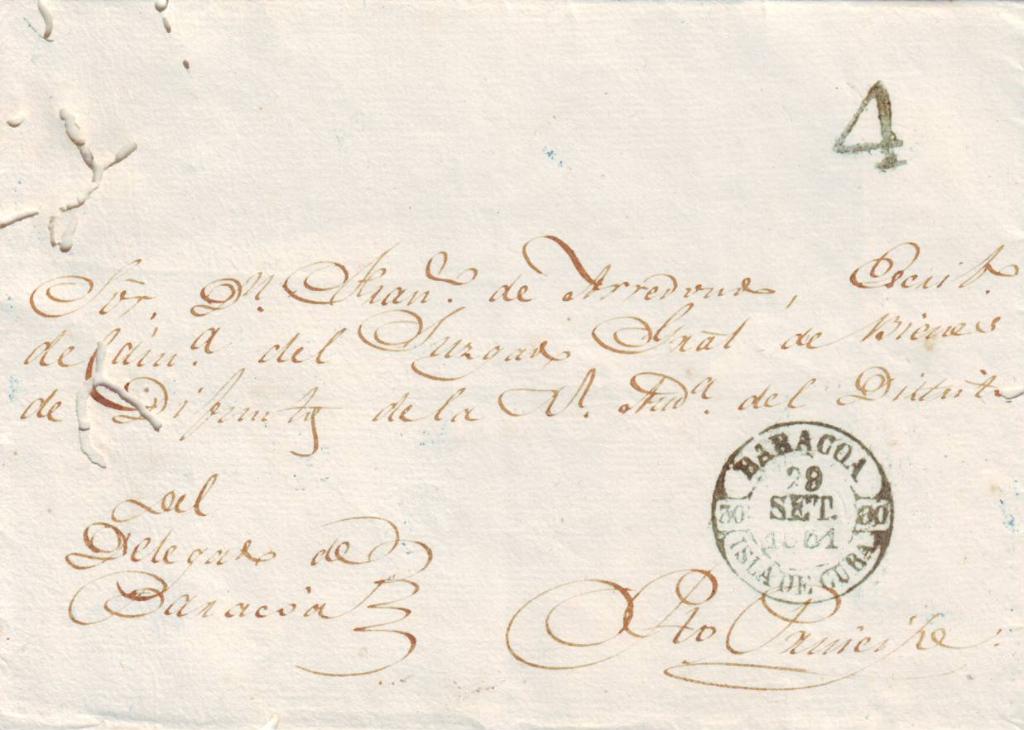 4
Sõr. Dn. Franco. de Arredondo, Escrib.
de Cám.a del Juzgado Gral de Bienes
de Difuntos de la Rl. Auda. del Distrito
Del
Delegado de
Baracoa
BARACOA
29
SET.
30 30
1861
ISLA DE CUBA
Pto Principe